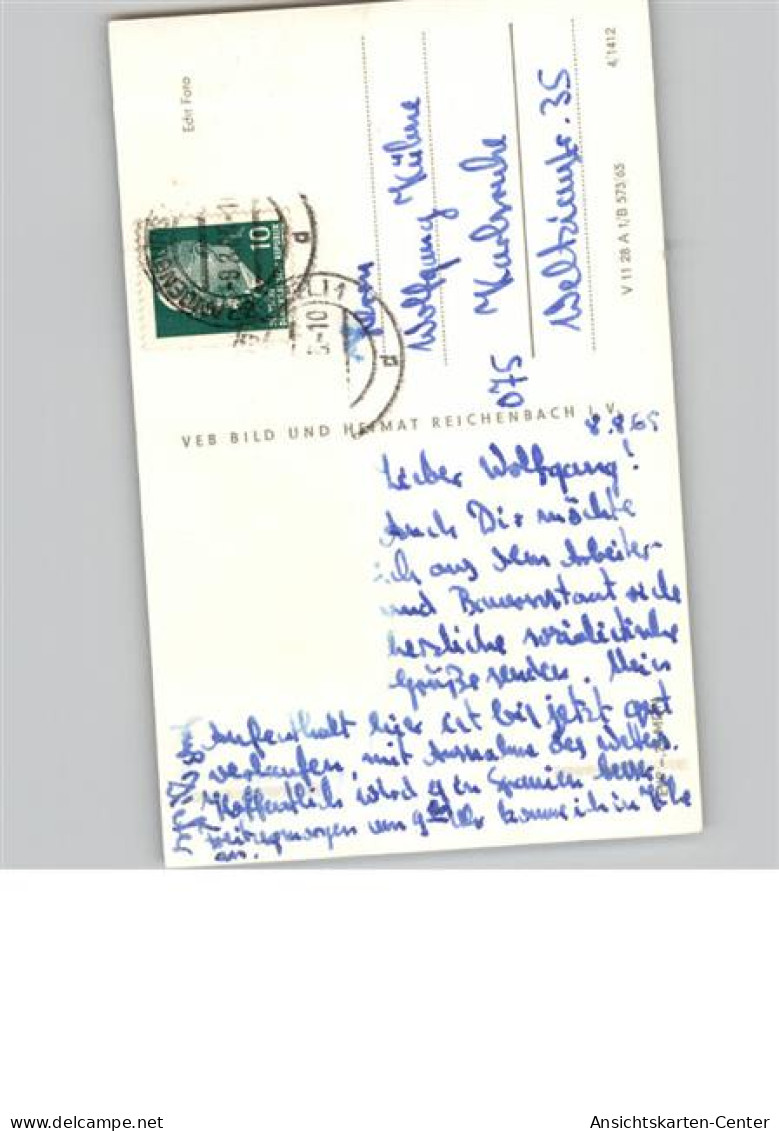 Edit Foto
10
Herrn
Wolfgang Kühne
075 Karlsruhe
Weltzienstr. 35
4/1412
V 11 28 A 1/B 575/65
VEB BILD UND HEIMAT REICHENBACH I. V.
8.8.65
Lieber Wolfgang!
Auch Dir möchte
ich aus dem Arbeiter-
und Bauernstaat viele
herzliche sozialistische
Grüße senden. Mein
Aufenthalt hier ist bis jetzt gut
verlaufen, mit Ausnahme des Wetters.
Hoffentlich wird es in Spanien besser.
um 9 Uhr komme ich in
an.
delcampe.net
Ansichtskarten-Center